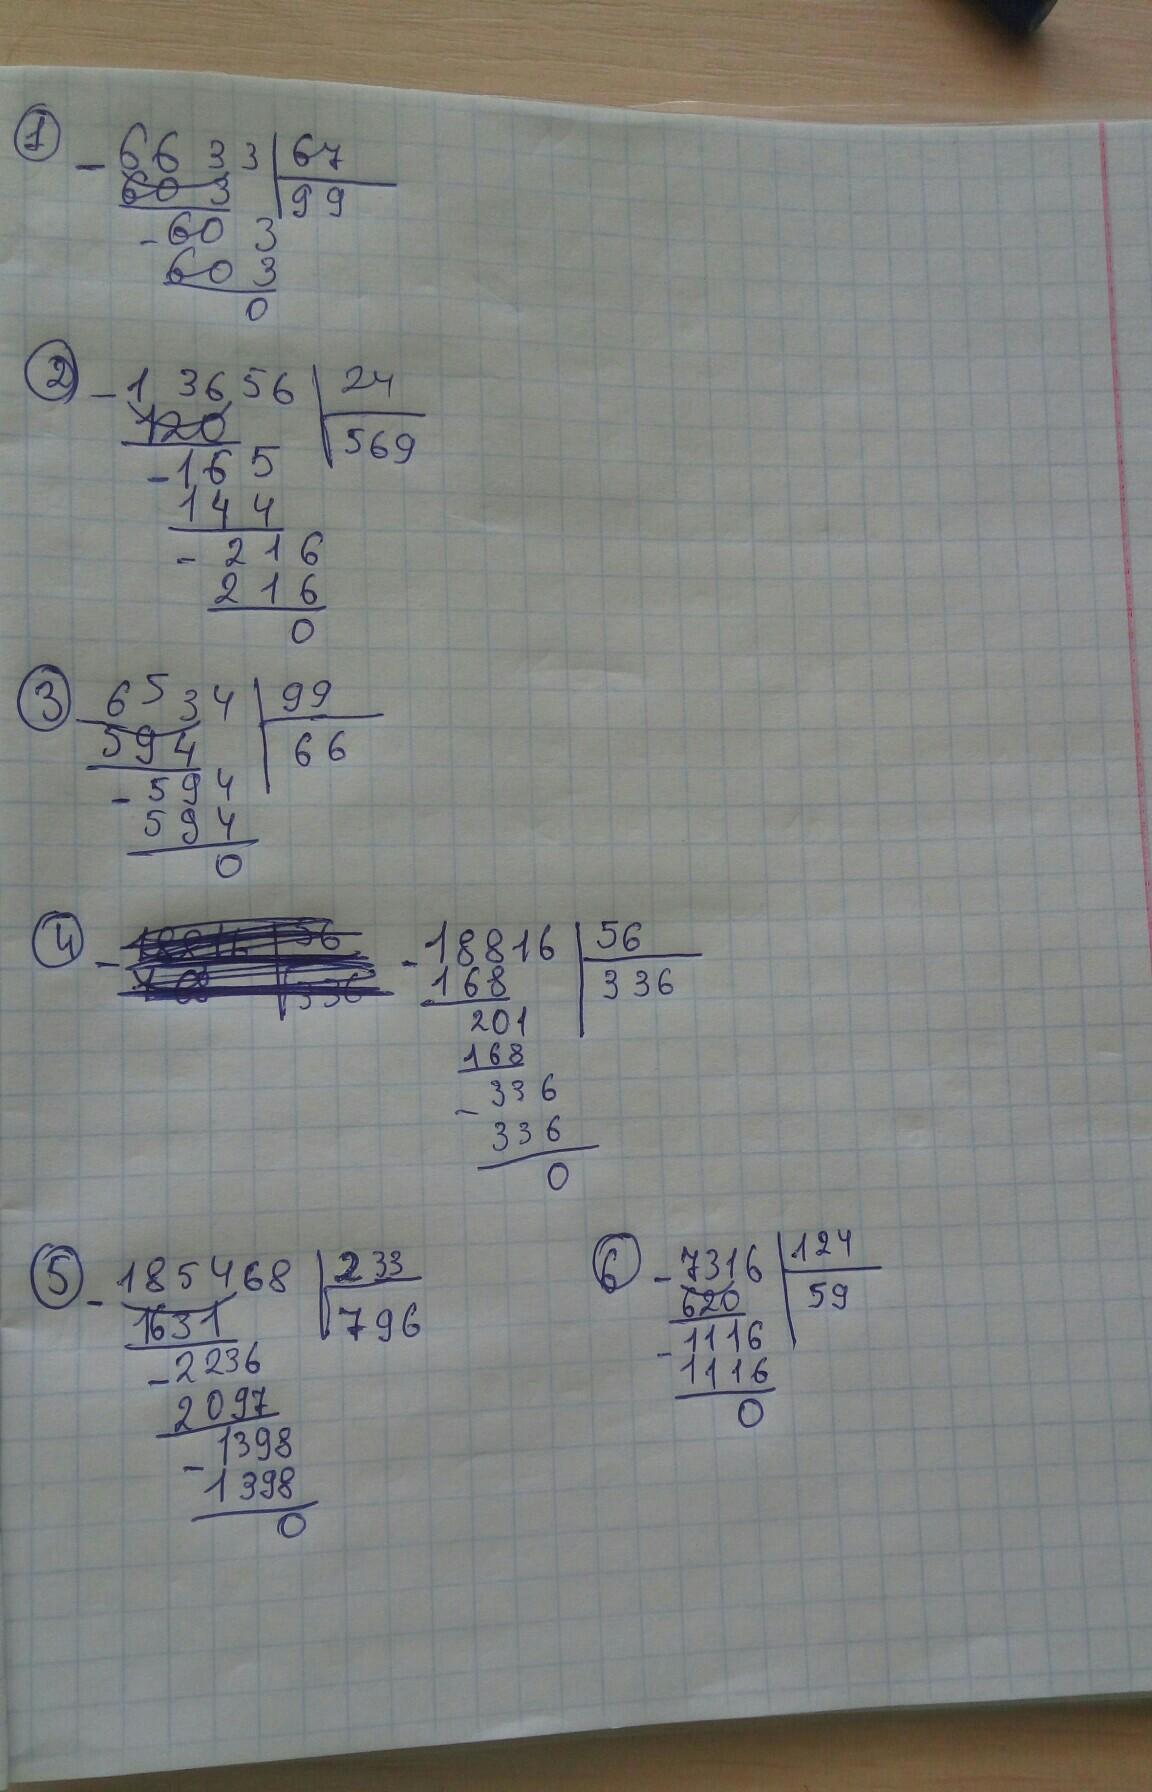 1
- 6633 | 67
603 | 99
- 603
603
0
2
- 13656 | 24
120 | 569
- 165
144
- 216
216
0
3
- 6534 | 99
594 | 66
- 594
594
0
4
- 18816 | 56
168 | 336
201
168
- 336
336
0
5
- 185468 | 233
1631 | 796
- 2236
2097
- 1398
1398
0
6
- 7316 | 124
620 | 59
- 1116
1116
0